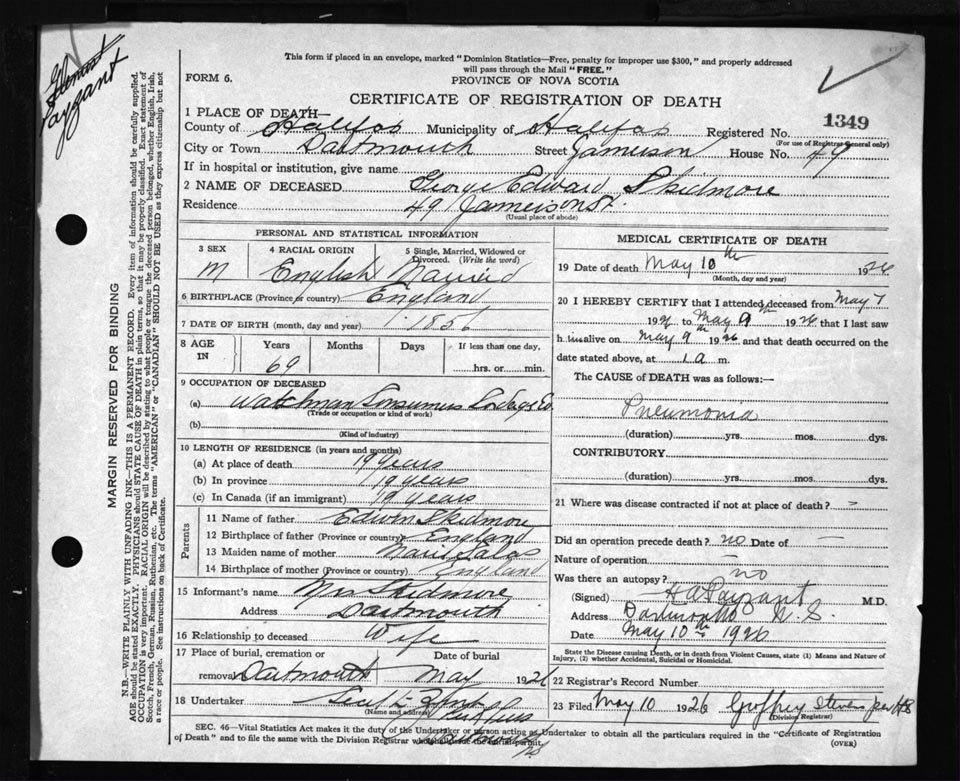 This form if placed in an envelope, marked "Dominion Statistics—Free, penalty for improper use $300," and properly addressed
will pass through the Mail "FREE."
FORM 6.
PROVINCE OF NOVA SCOTIA
CERTIFICATE OF REGISTRATION OF DEATH
1 PLACE OF DEATH
County of Halifax Municipality of Halifax Registered No. 1349
(For use of Registrar General only)
City or Town Dartmouth Street Jamieson House No. 49
If in hospital or institution, give name
2 NAME OF DECEASED George Edward Skidmore
Residence 49 Jamieson St.
(Usual place of abode)
PERSONAL AND STATISTICAL INFORMATION
3 SEX 4 RACIAL ORIGIN 5 Single, Married, Widowed or
Divorced. (Write the word)
M English Married
6 BIRTHPLACE (Province or country) England
7 DATE OF BIRTH (month, day and year) 1856
8 AGE IN Years Months Days If less than one day,
69 hrs. or min.
9 OCCUPATION OF DECEASED
(a) Watchman Consumers Cordage Co.
(Trade or occupation or kind of work)
(b)
(Kind of industry)
10 LENGTH OF RESIDENCE (in years and months)
(a) At place of death 19 years
(b) In province 19 years
(c) In Canada (if an immigrant) 19 years
Parents
11 Name of father Edwin Skidmore
12 Birthplace of father (Province or country) England
13 Maiden name of mother
14 Birthplace of mother (Province or country) England
15 Informant's name Mrs Skidmore
Address Dartmouth
16 Relationship to deceased Wife
17 Place of burial, cremation or Date of burial
removal Dartmouth May 1926
18 Undertaker
(Name and address)
MEDICAL CERTIFICATE OF DEATH
19 Date of death May 10th 1926
(Month, day and year)
20 I HEREBY CERTIFY that I attended deceased from May 7
1926 to May 9th 1926 that I last saw
h im alive on May 9th 1926 and that death occurred on the
date stated above, at 1 a m.
The CAUSE of DEATH was as follows:
Pneumonia
(duration) yrs. mos. dys.
CONTRIBUTORY
(duration) yrs. mos. dys.
21 Where was disease contracted if not at place of death? —
Did an operation precede death? no Date of —
Nature of operation —
Was there an autopsy? no
(Signed) H A Payzant M.D.
Address Dartmouth N. S.
Date May 10th 1926
State the Disease causing Death, or in death from Violent Causes, state (1) Means and Nature of
Injury, (2) whether Accidental, Suicidal or Homicidal.
22 Registrar's Record Number
23 Filed May 10 1926 Geoffrey Stevens per
(Division Registrar)
SEC. 46—Vital Statistics Act makes it the duty of the Undertaker or person acting as Undertaker to obtain all the particulars required in the "Certificate of Registration
of Death" and to file the same with the Division Registrar who shall issue the burial permit.
(OVER)
MARGIN RESERVED FOR BINDING
N.B.—WRITE PLAINLY WITH UNFADING INK—THIS IS A PERMANENT RECORD. Every item of information should be carefully supplied.
AGE should be stated EXACTLY. PHYSICIANS should STATE CAUSE OF DEATH in plain terms, so that it may be properly classified. Exact statement of
OCCUPATION is very important. RACIAL ORIGIN will be described by stating to what people or tongue the deceased person belonged, whether English, Irish,
Scotch, French, German, Russian, Ruthenian, etc. The terms "AMERICAN" or "CANADIAN" SHOULD NOT BE USED as they express citizenship but not
a race or people. See instructions on back of Certificate.
Payzant